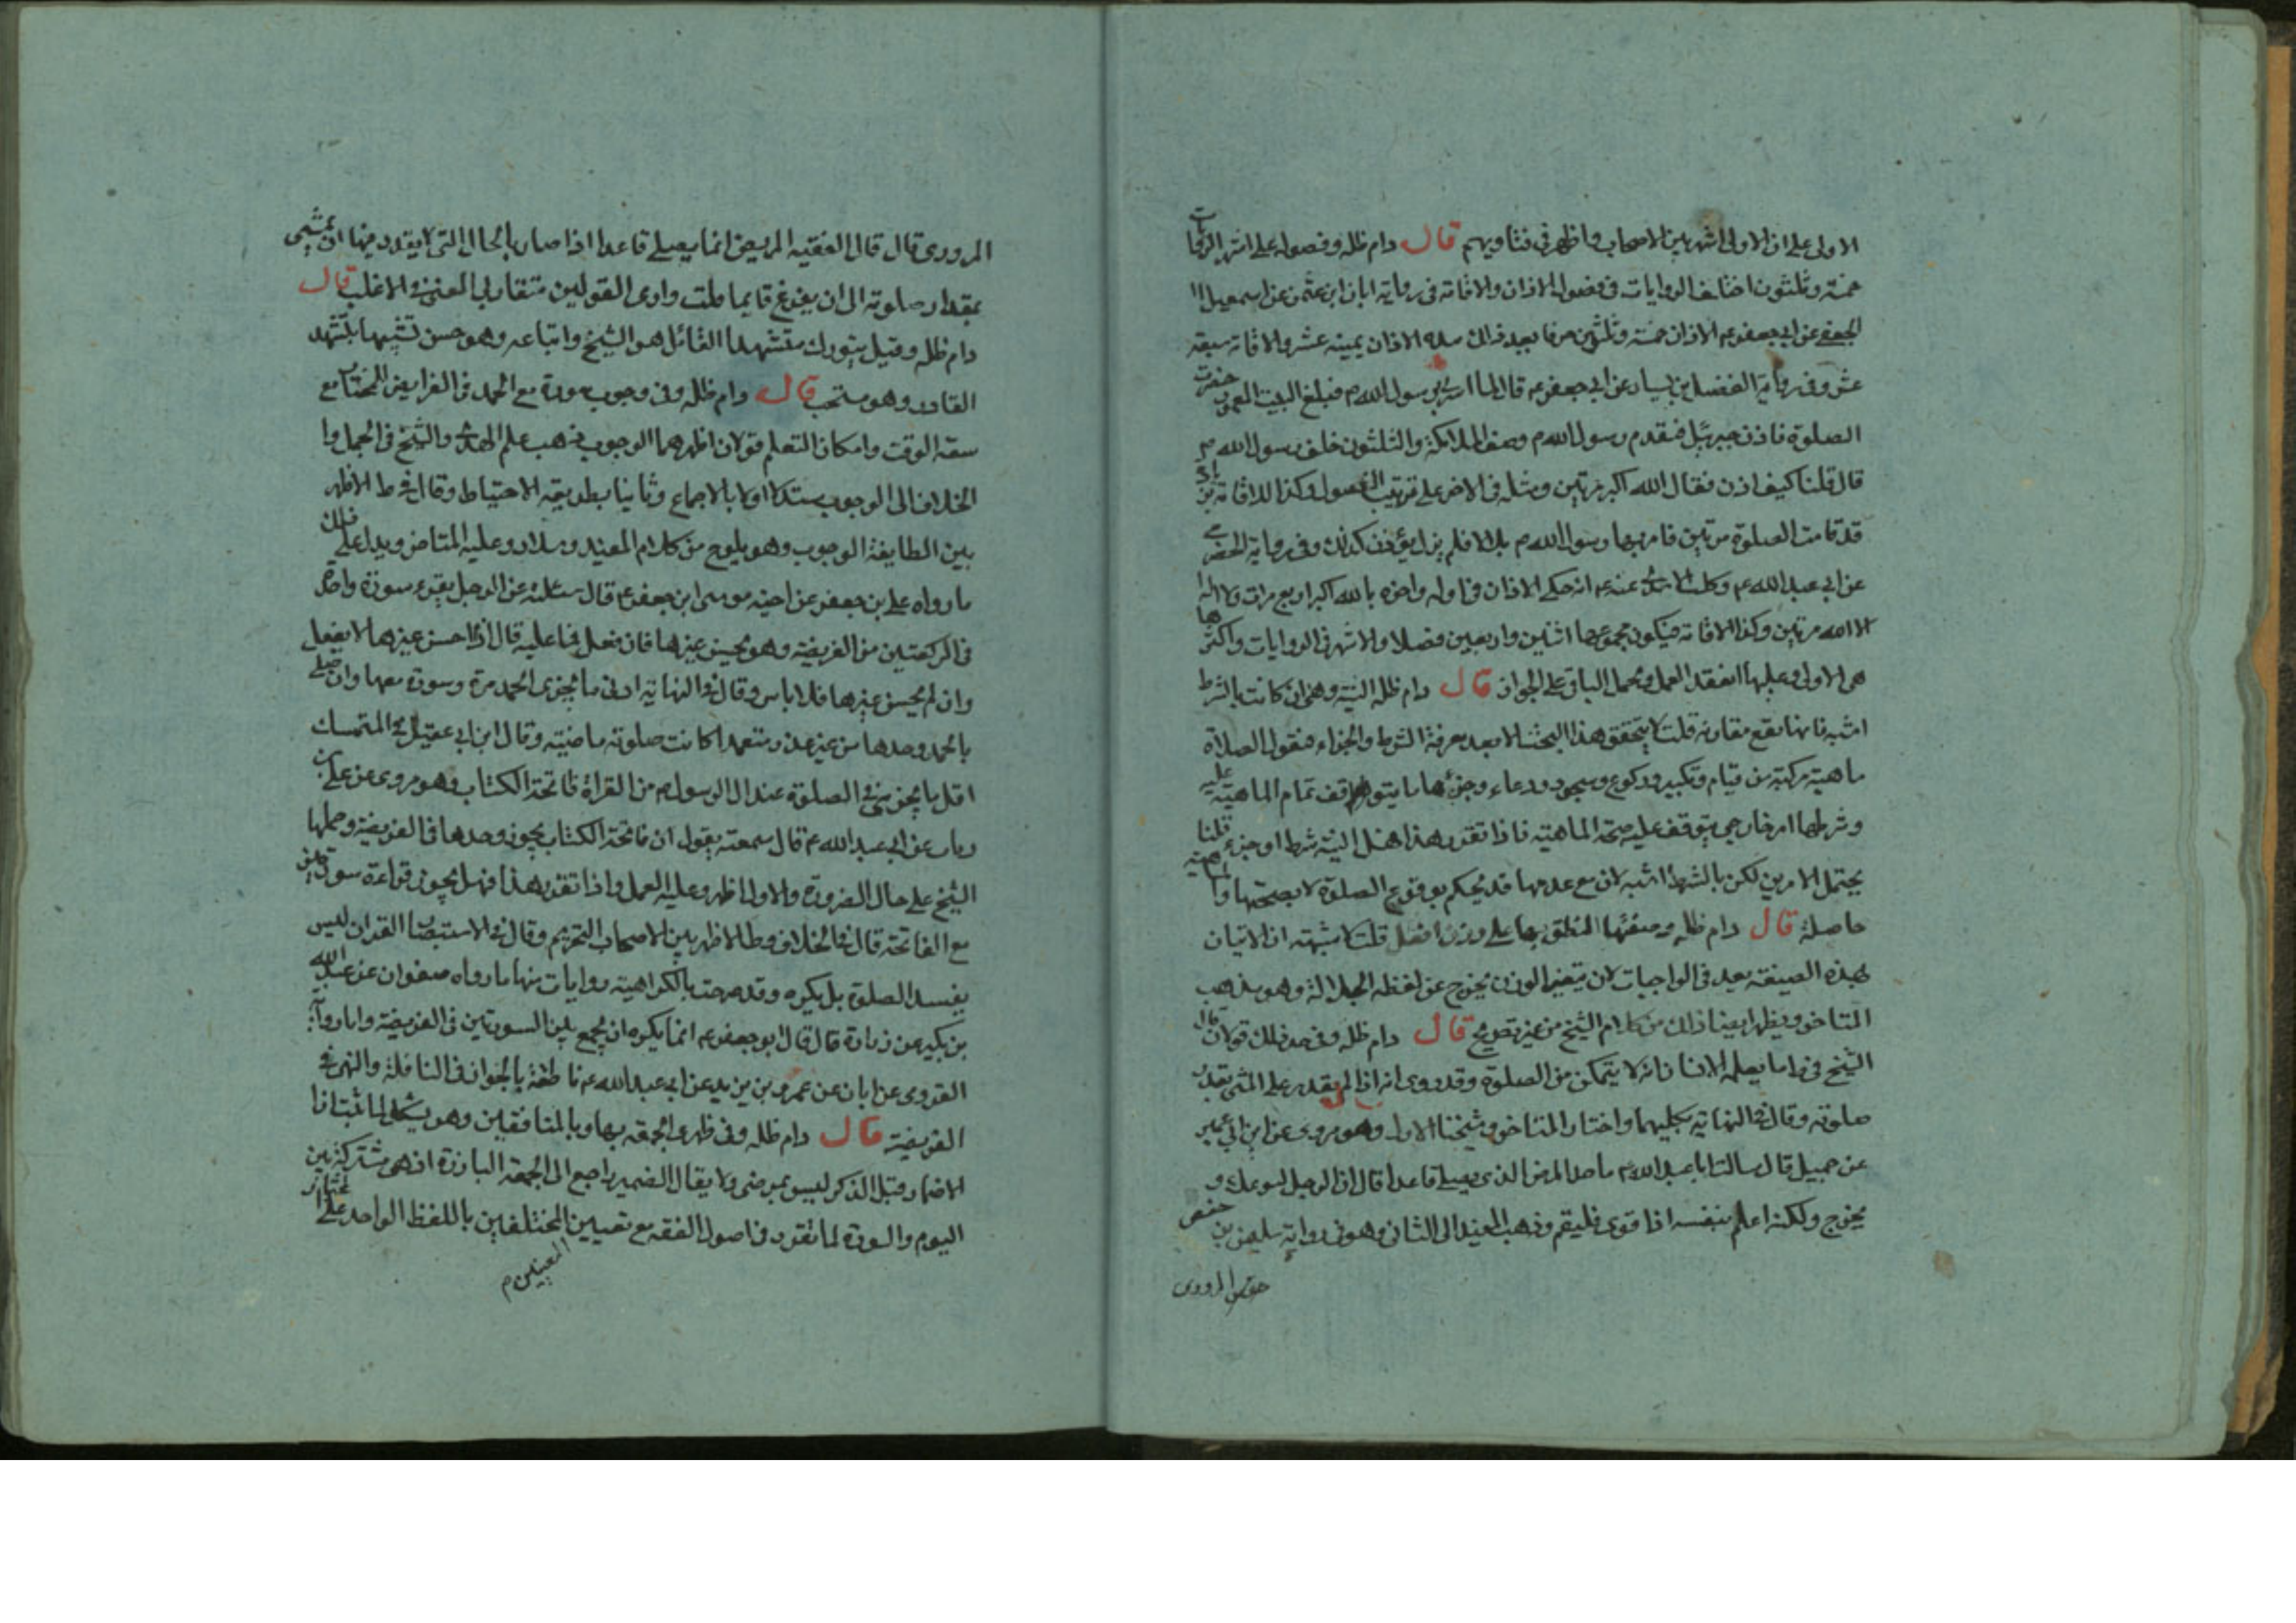 الاولى على ان الاولى اشهر بين الاصحاب واظهر في فتاويهم قال دام ظله وفصوله على اشهر الروايات
خمسة وثلثون اختلف الروايات في فصول الاذان والاقامة في رواية ابان ابن عثمن عن اسمعيل
الجعفي عن ابي جعفر ع الاذان خمسة وثلثين حرفا بعد ذلك بيده الاذان ثمنية عشر والاقامة سبعة
عشر وفي رواية الفضيل بن يسار عن ابي جعفر ع قال لما اسري برسول الله ص فبلغ البيت المعمور حضرت
الصلوة فاذن جبرئيل فتقدم رسول الله ص وصف الملائكة والنبيون خلف رسول الله ص
قال قلنا كيف اذن فقال الله اكبر مرتين ومثله في الاخر على ترتيب الفصول وكذا الاقامة بزيادة
قد قامت الصلوة مرتين فامر بها رسول الله ص بلالا فلم يزل يؤذن كذلك وفي رواية الحضرمي
عن ابي عبد الله ع وكليب الاسدي عنه ع انه حكى الاذان في اوله واخره بالله اكبر اربع مرات ولا اله
الا الله مرتين وكذا الاقامة فيكون مجموعهما اثنين واربعين فصلا والاشهر في الروايات واكثرها
هي الاولى وعليها انعقد العمل ويحمل الباقي على الجواز قال دام ظله النية وهي وان كانت بالشرط
اشبه فانها تقع مقارنة قلت لا يتحقق هذا البحث الا بعد معرفة الشرط والجزاء فنقول الصلاة
ماهية مركبة من قيام وتكبير وركوع وسجود ودعاء وجزئها ما يتوقف تمام الماهية عليه
وشرطها امر خارجي يتوقف عليه صحة الماهية فاذا تقرر هذا فهل النية شرط او جزء قلنا
يحتمل الامرين لكن بالشرط اشبه لان مع عدمها قد يحكم بوقوع الصلوة لا بصحتها والماهية
حاصلة قال دام ظله وصفتها المنطق بها على وزن افعل قلت لا شبهة ان الاتيان
بهذه الصيغة يعد في الواجبات لان بتغير الوزن يخرج عن لفظه الجلالة وهو مذهب
المتاخر ويظهر ايضا ذلك من كلام الشيخ من غير تصريح قال دام ظله وفي حد ذلك قولان قال
الشيخ في ط ما يعلمه الانسان انه لا يتمكن من الصلوة وقد روى انه اذا لم يقدر على المشي بقدر
صلوته وقال في النهاية بكليهما واختار المتاخر وشيخنا الاول وهو مروى عن ابن ابي عمير
عن جميل قال سالت ابا عبد الله ع ما حد المرض الذى يصلي قاعدا قال ان الرجل ليوعك و
يخرج ولكنه اعلم بنفسه اذا قوى فليقم وذهب المفيد الى الثاني وهو في رواية سليمن بن حفص
حفص المروزى
المروزى قال قال الفقيه المريض انما يصلي قاعدا اذا صار بالحال التي لا يقدر فيها ان يمشي
بمقدار صلوته الى ان يفرغ قايما قلت وارى القولين متقاربي المعنى في الاغلب قال
دام ظله وقيل يتورك متشهدا القائل هو الشيخ واتباعه وهو حسن تشبيها بتشهد
القادر وهو مستحب قال دام ظله وفي وجوب سورة مع الحمد في الفرايض للمختار مع
سعة الوقت وامكان التعلم قولان اظهرهما الوجوب ذهب علم الهدى والشيخ في الجمل وا
الخلاف الى الوجوب مستدلا اولا بالاجماع وثانيا بطريقة الاحتياط وقال في ط الاظهر
بين الطايفة الوجوب وهو يلوح من كلام المفيد وسلار وعليه المتاخر ويدل على ذلك
ما رواه علي بن جعفر عن اخيه موسى ابن جعفر ع قال سئلته عن الرجل يقرء سورة واحدة
في الركعتين من الفريضة وهو يحسن غيرها فان فعل فما عليه قال اذا احسن غيرها لا يفعل
وان لم يحسن غيرها فلا باس وقال في النهاية ادنى ما يجزى الحمد مرة وسورة معها وان صلى
بالحمد وحدها من غير عذر متعمدا كانت صلوته ماضية وقال ابن ابي عقيل في المتمسك
اقل ما يجزى في الصلوة عند ال الرسول ص من القراة فاتحة الكتاب وهو مروى عن علي بن
رياب عن ابي عبد الله ع قال سمعته يقول ان فاتحة الكتاب يجوز وحدها في الفريضة وحملها
الشيخ على حال الضرورة والاول اظهر وعليه العمل واذا تقرر هذا فهل يجوز قراءة سورتين
مع الفاتحة قال في الخلاف وط الاظهر بين الاصحاب التحريم وقال في الاستبصار القران ليس
يفسد الصلوة بل يكره وقد صرحت بالكراهية روايات منها ما رواه صفوان عن عبد الله
بن بكير عن زرارة قال قال ابو جعفر ع انما يكره ان يجمع بين السورتين في الفريضة واما رواية
القروى عن ابان عن عمر بن يزيد عن ابي عبد الله ع ناطقة بالجواز في النافلة والنهى في
الفريضة قال دام ظله وفي ظهرى الجمعة بها وبالمنافقين وهو يشكل لما ثبت ان
الاضمار قبل الذكر ليس بمرضى ولا يقال الضمير راجع الى الجمعة البارزة اذ هى مشتركة بين
اليوم والسورة لما تقرر في اصول الفقه مع تعيين المختلفين باللفظ الواحد على